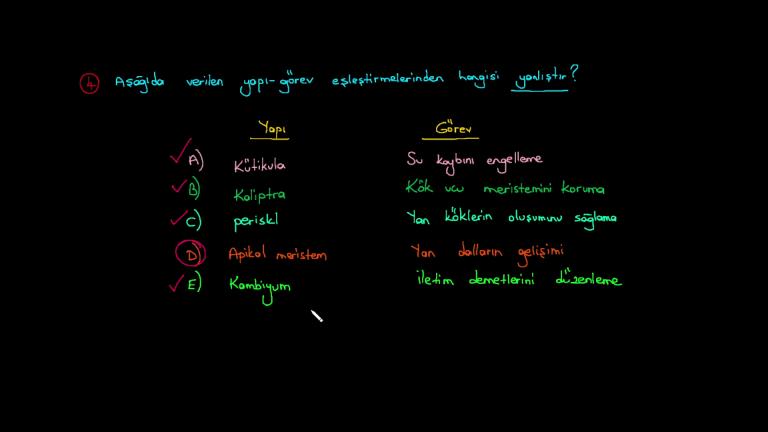 4 Aşağıda verilen yapı-görev eşleştirmelerinden hangisi yanlıştır?
Yapı Görev
A) Kütikula Su kaybını engelleme
B) Kaliptra Kök ucu meristemini koruma
C) periskl Yan köklerin oluşumunu sağlama
D) Apikal meristem Yan dalların gelişimi
E) Kambiyum iletim demetlerini düzenleme